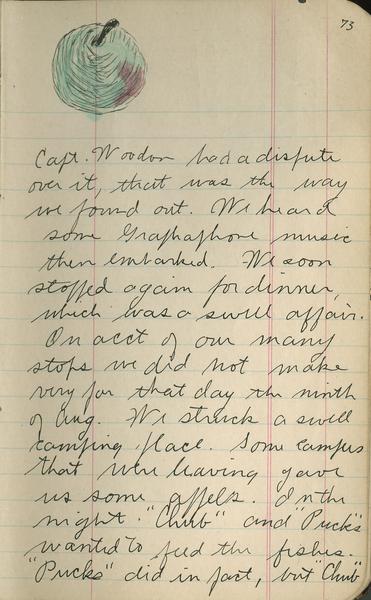 73
Capt. Woodon had a dispute
over it, that was the way
we found out. We heard
some Graphaphone music
then embarked. We soon
stopped again for dinner,
which was a swell affair.
On acct of our many
stops we did not make
very far that day the ninth
of Aug. We struck a swell
camping place. Some campers
that were leaving gave
us some apples. In the
night "Chub" and "Pucks"
wanted to feed the fishes.
"Pucks" did in fact, but "Chub"